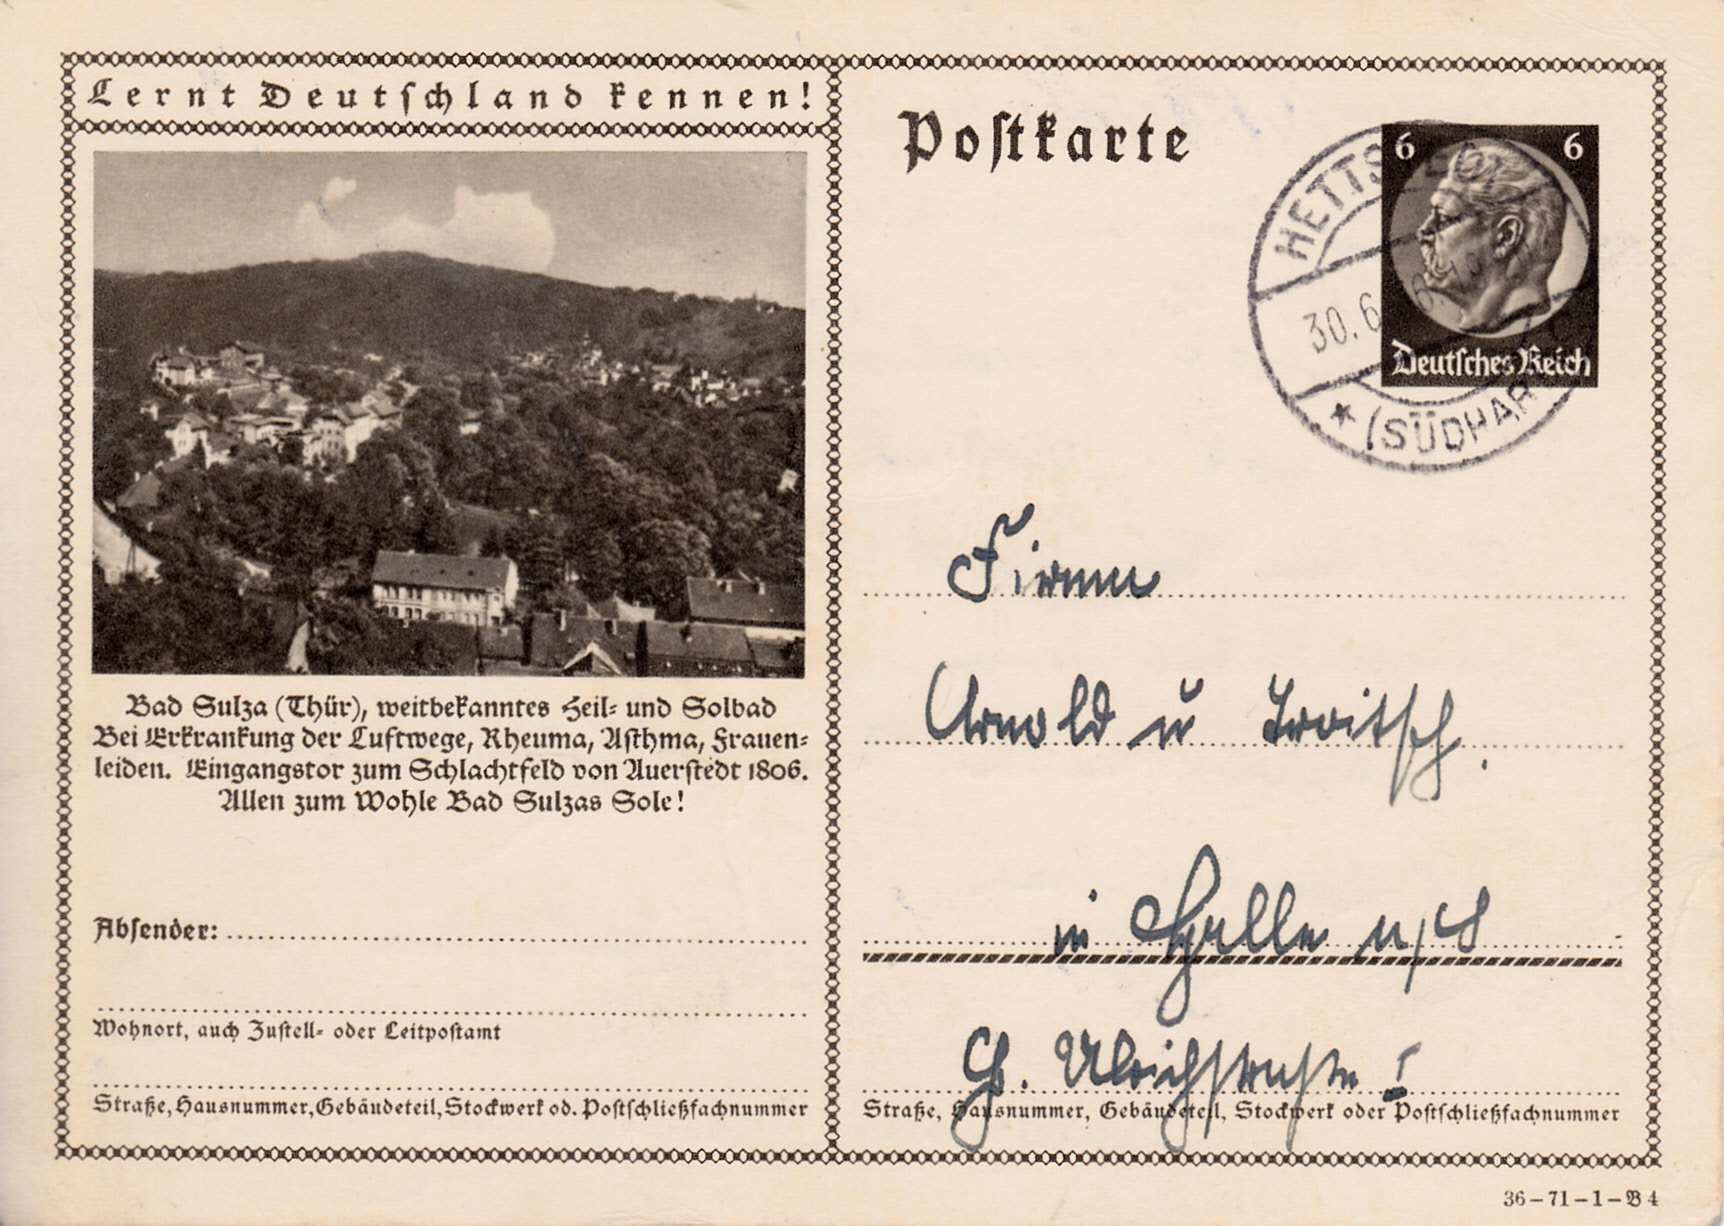 Lernt Deutschland kennen!
Bad Sulza (Thür), weitbekanntes Heil- und Solbad
Bei Erkrankung der Luftwege, Rheuma, Asthma, Frauen-
leiden. Eingangstor zum Schlachtfeld von Auerstedt 1806.
Allen zum Wohle Bad Sulzas Sole!
Absender:
Wohnort, auch Zustell- oder Leitpostamt
Straße, Hausnummer, Gebäudeteil, Stockwerk od. Postschließfachnummer
Postkarte
6 6
Deutsches Reich
HETTST
30.6
* (SÜDHAR
Firma
Arnold u Troitsch.
in Halle a/S
G. Ulrichstraße 1
Straße, Hausnummer, Gebäudeteil, Stockwerk oder Postschließfachnummer
36-71-1-B 4